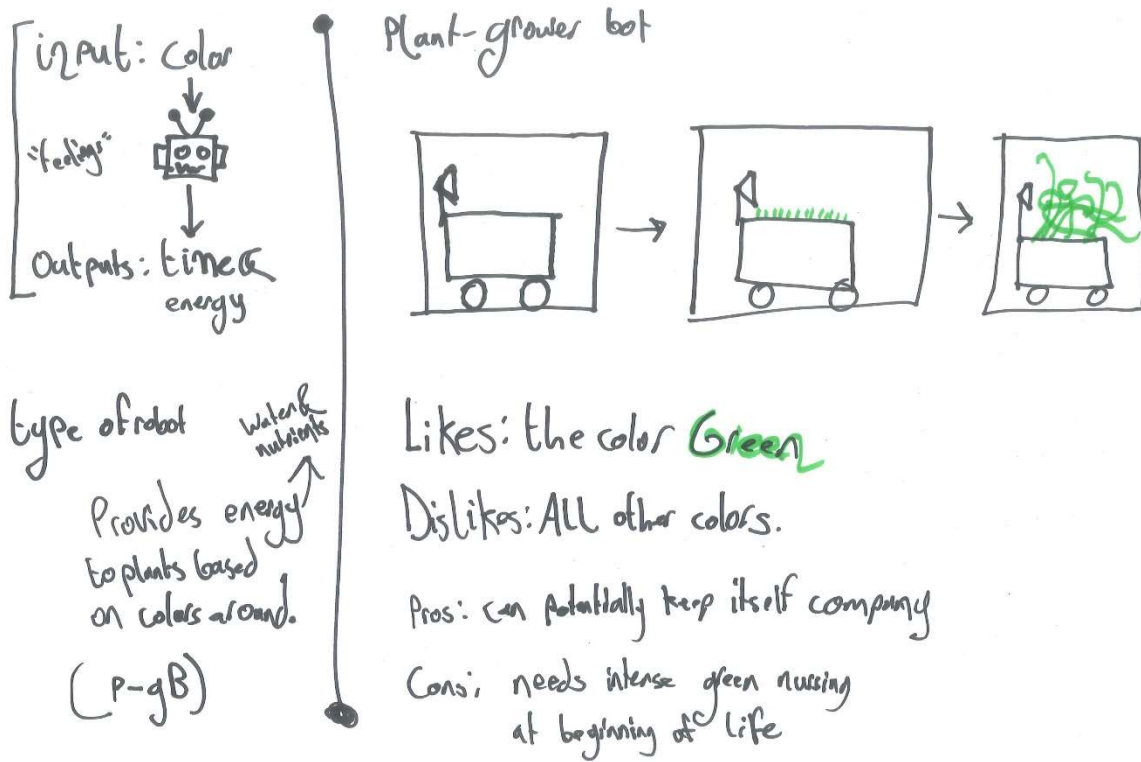 input: Color
"feelings"
Outputs: time &
energy
type of robot
Water &
nutrients
Provides energy
to plants based
on colors around.
(P-gB)
Plant-grower bot
Likes: the color Green
Dislikes: All other colors.
Pros: can potentially keep itself company
Cons: needs intense green nursing
at beginning of life